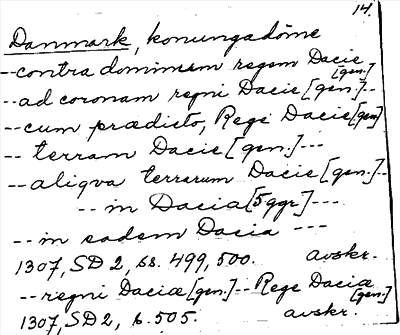 14.
Danmark, konungadöme
-- contra dominum regem Dacie [gen.]
-- ad coronam regni Dacie [gen.] --
-- cum prædicto, Rege Dacie [gen]
-- terram Dacie [gen.] ---
-- aliqva terrarum Dacie [gen.] --
-- in Dacia [5ggr] ---
-- in eadem Dacia ---
1307, SD 2, ss. 499, 500. avskr.
-- regni Daciæ [gen.] -- Rege Daciæ [gen.]
1307, SD 2, s. 505. avskr.